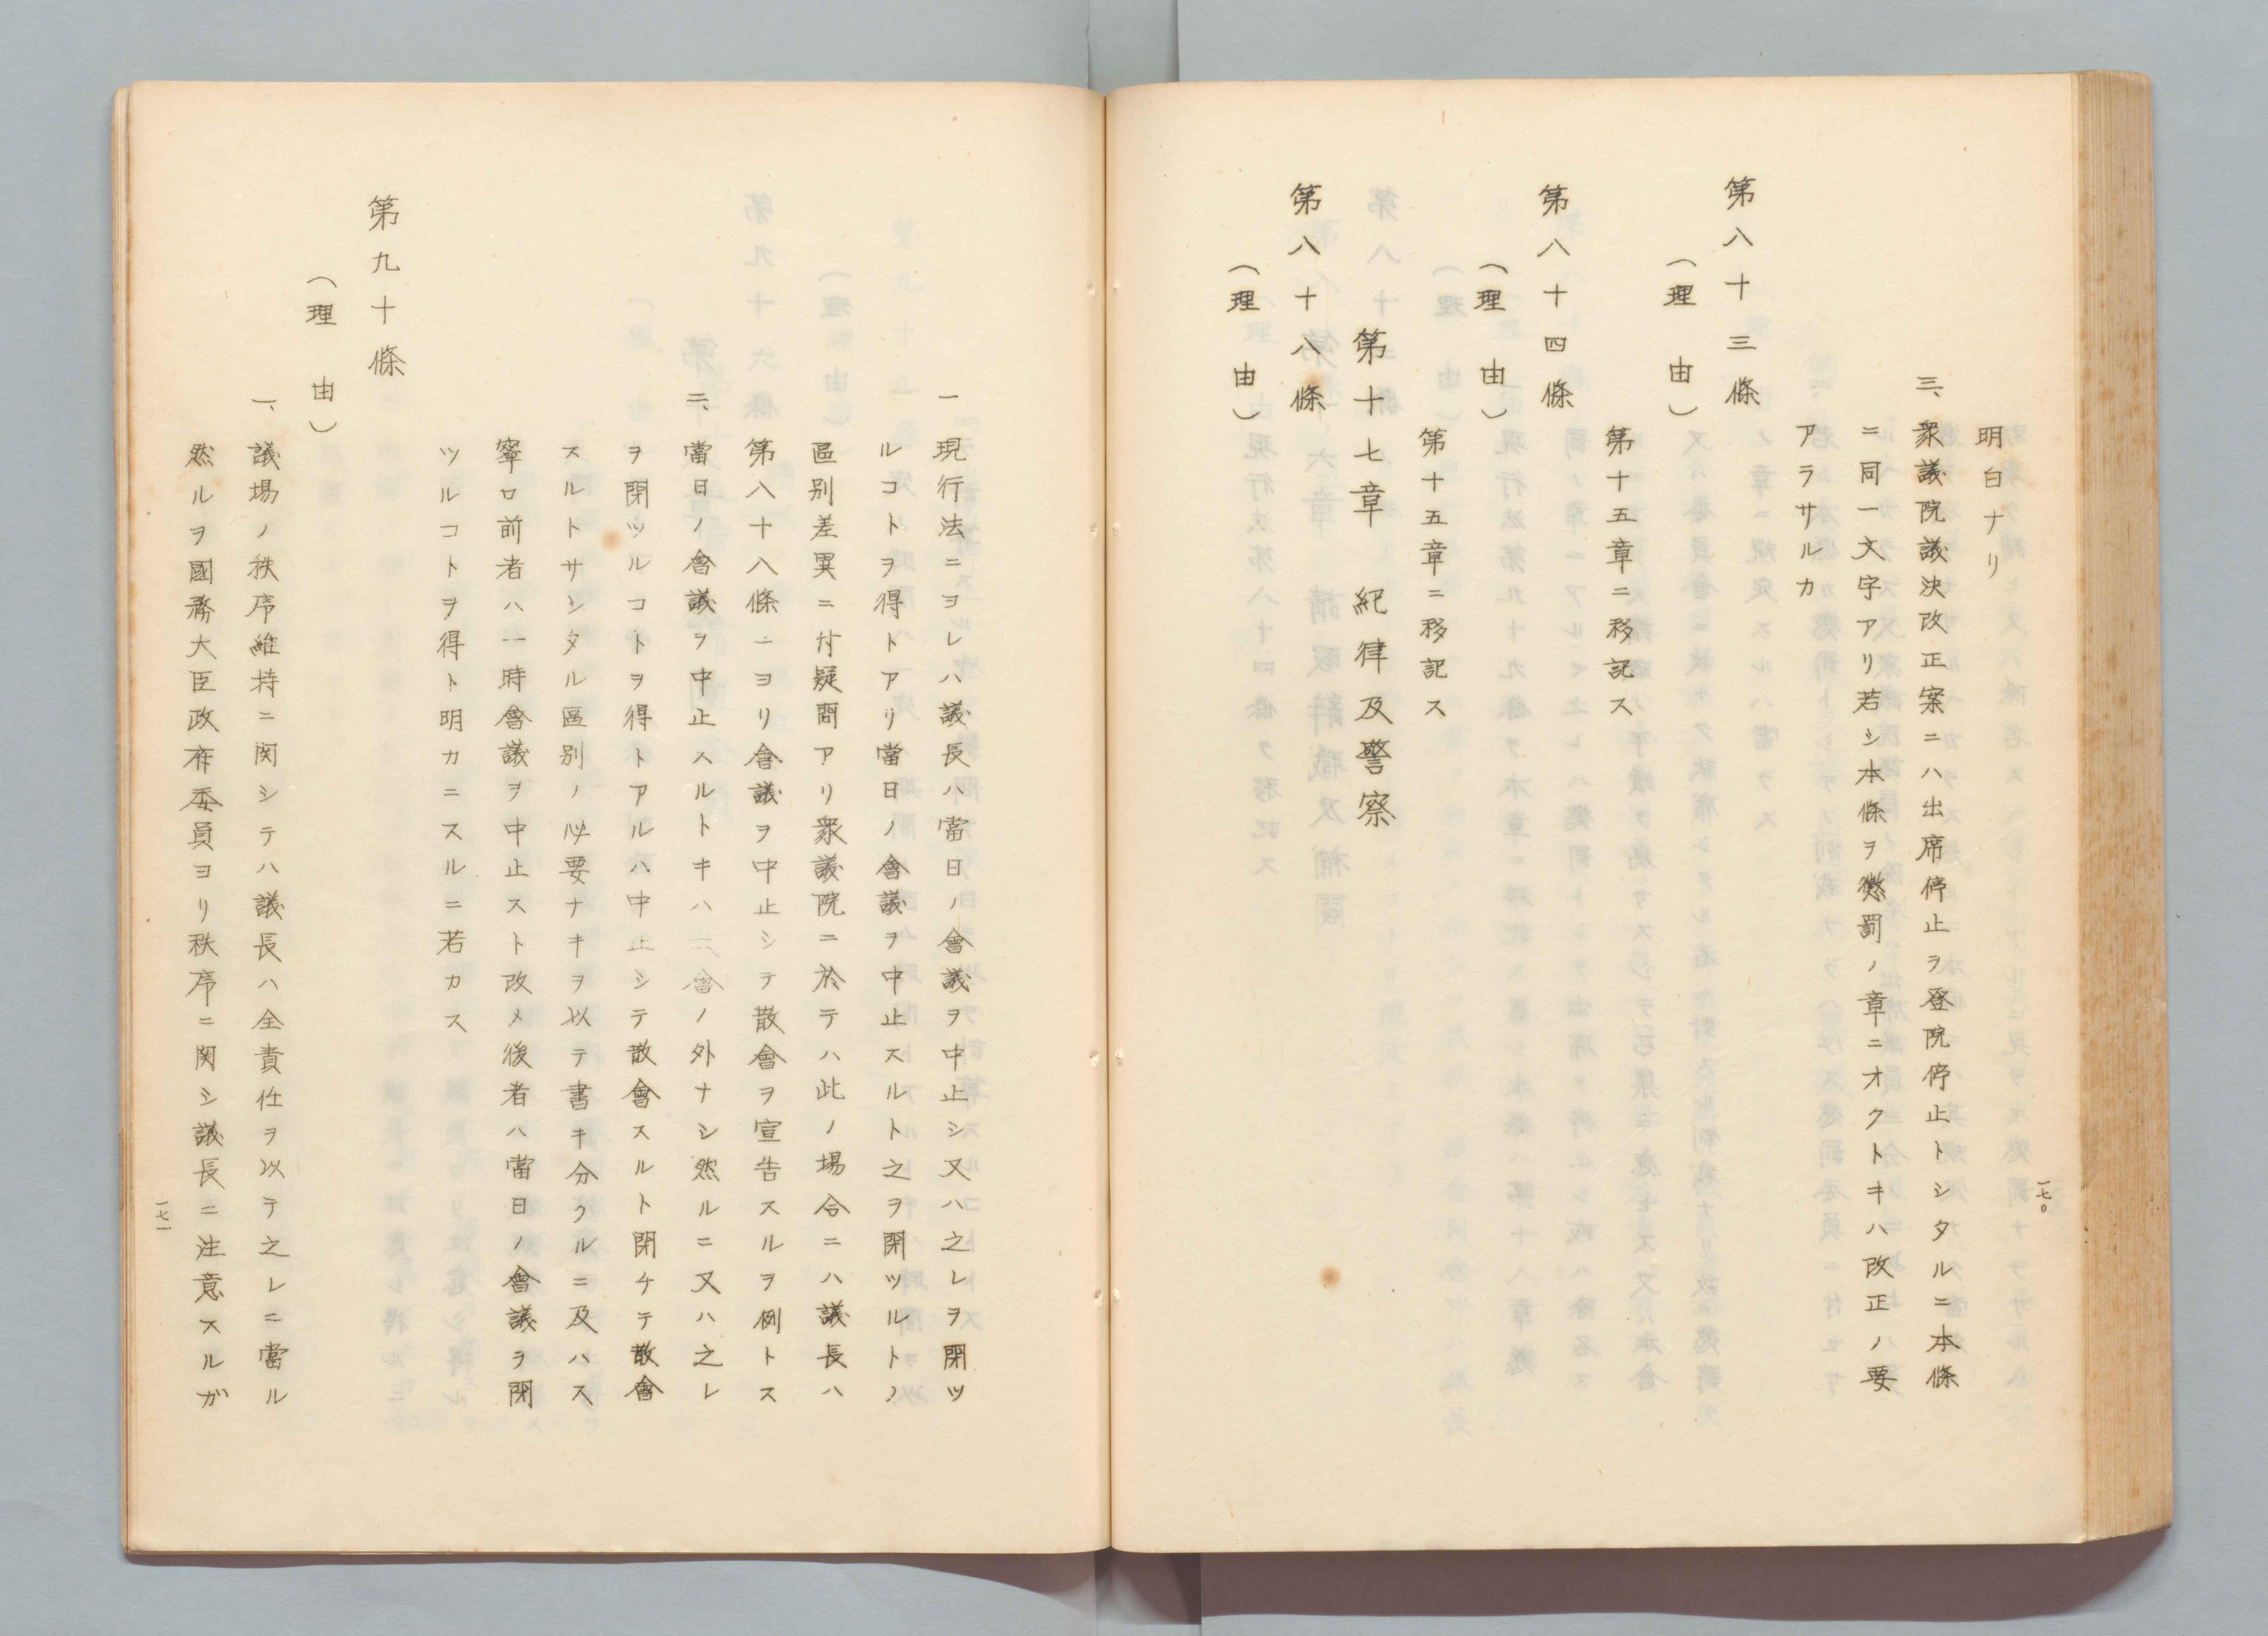 明白ナリ
三、衆議院議決改正案ニハ出席停止ヲ登院停止トシタルニ本條
ニ同一文字アリ若シ本條ヲ懲罰ノ章ニオクトキハ改正ノ要
アラサルカ
第八十三條
（理由）
第十五章ニ移記ス
第八十四條
（理由）
第十五章ニ移記ス
第十七章　紀律及警察
第八十八條
（理由）
一七〇
一現行法ニヨレハ議長ハ當日ノ會議ヲ中止シ又ハ之レヲ閉ツ
ルコトヲ得トアリ當日ノ會議ヲ中止スルト之ヲ閉ツルトノ
區別差異ニ付疑問アリ衆議院ニ於テハ此ノ場合ニハ議長ハ
第八十八條ニヨリ會議ヲ中止シテ散會ヲ宣告スルヲ例トス
二、當日ノ會議ヲ中止スルトキハ散會ノ外ナシ然ルニ又ハ之レ
ヲ閉ツルコトヲ得トアルハ中止シテ散會スルト閉チテ散會
スルトサシタル區別ノ必要ナキヲ以テ書キ分クルニ及ハス
寧ロ前者ハ一時會議ヲ中止スト改メ後者ハ當日ノ會議ヲ閉
ツルコトヲ得ト明カニスルニ若カス
第九十條
（理由）
一、議場ノ秩序維持ニ関シテハ議長ハ全責任ヲ以テ之レニ當ル
然ルヲ國務大臣政府委員ヨリ秩序ニ関シ議長ニ注意スルガ
一七一